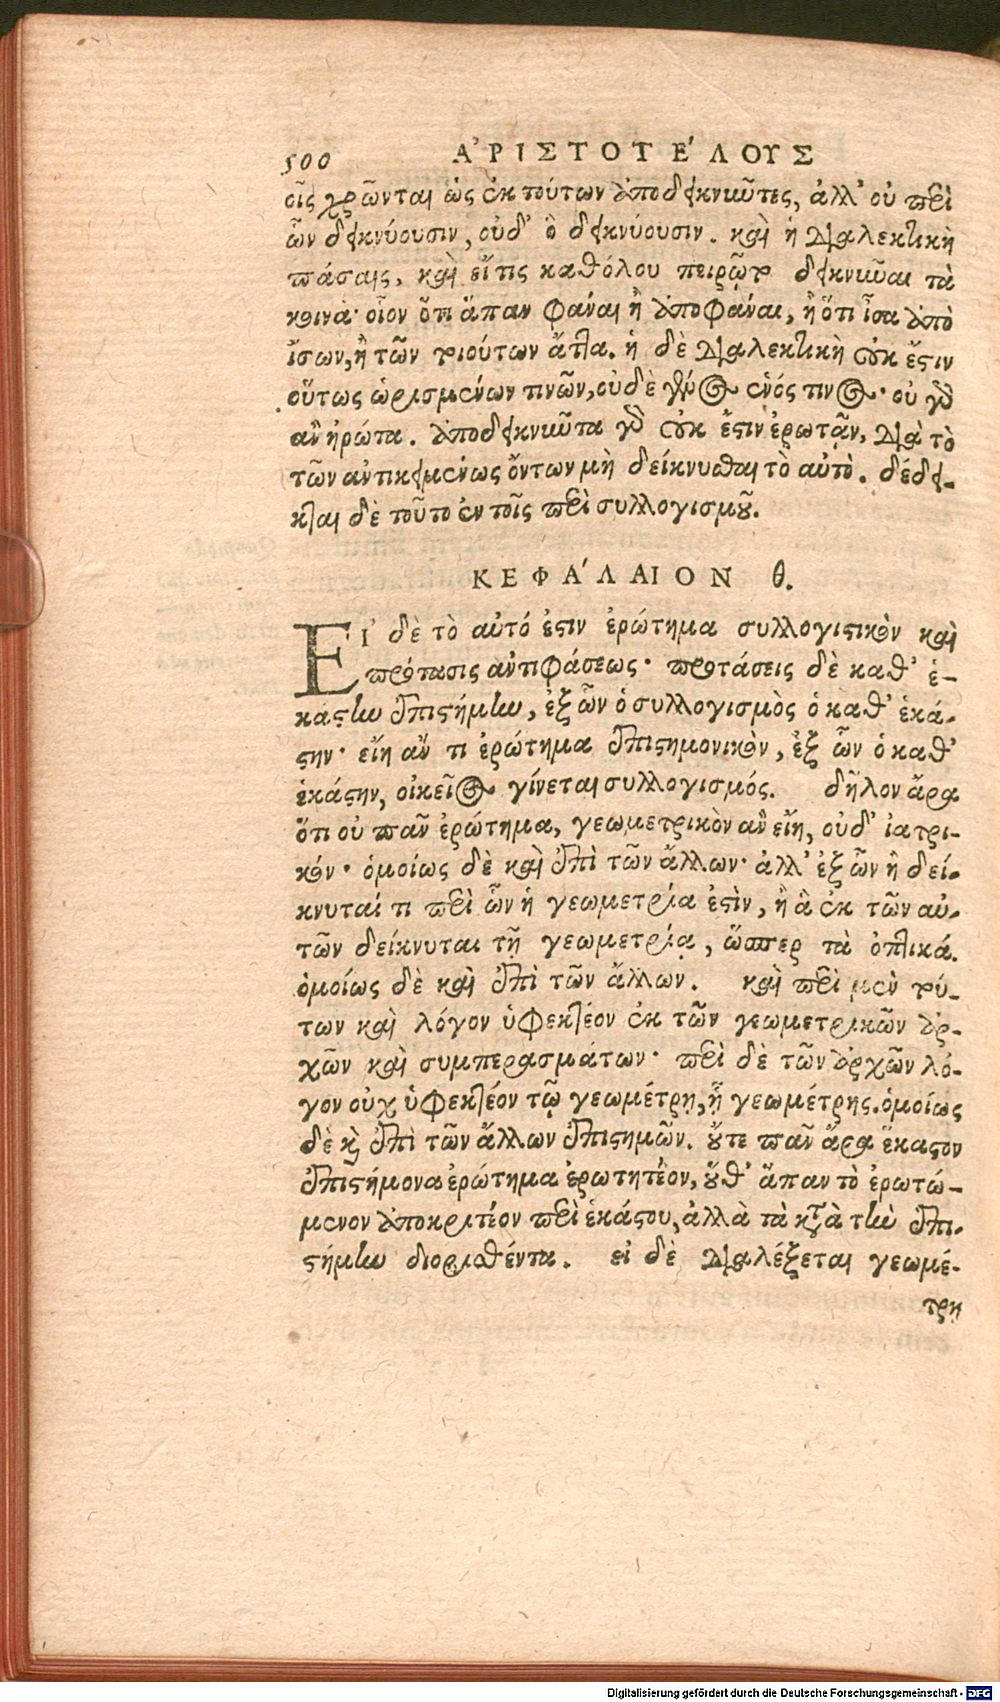 500 ΑʼΡΙΣΤΟΤΕʹΛΟΥΣ
οἷς χρῶνται ὡς ἐκ τούτων ἀποδεικνῦντες, ἀλλ' οὐ περὶ
ὧν δεικνύουσιν, οὐδ' ὃ δεικνύουσιν. καὶ ἡ διαλεκτικὴ
πάσαις, καὶ εἴ τις καθόλου πειρῷτο δεικνῦναι τὰ
κοινὰ· οἷον ὅτι ἅπαν φάναι ἢ ἀποφάναι, ἢ ὅτι ἶσα ἀπὸ
ἴσων, ἢ τῶν τοιούτων ἄττα. ἡ δὲ διαλεκτικὴ οὐκ ἔστιν
οὕτως ὡρισμένων τινῶν, οὐδὲ γένους ἑνός τινος· οὐ γὰρ
ἂν ἠρώτα. ἀποδεικνῦντα γὰρ οὐκ ἔστιν ἐρωτᾷν, διὰ τὸ
τῶν ἀντικειμένως ὄντων μὴ δείκνυσθαι τὸ αὐτὸ. δέδει-
κται δὲ τοῦτο ἐν τοῖς περὶ συλλογισμοῦ.
ΚΕΦΑʹΛΑΙΟΝ θ.
ΕΙʼ δὲ τὸ αὐτό ἐστιν ἐρώτημα συλλογιστικὸν καὶ
πρότασις ἀντιφάσεως· προτάσεις δὲ καθ' ἑ-
κάστην ἐπιστήμην, ἐξ ὧν ὁ συλλογισμὸς ὁ καθ' ἑκά-
στην· εἴη ἄν τι ἐρώτημα ἐπιστημονικὸν, ἐξ ὧν ὁ καθ'
ἑκάστην, οἰκεῖος γίνεται συλλογισμός. δῆλον ἄρα
ὅτι οὐ πᾶν ἐρώτημα, γεωμετρικὸν ἂν εἴη, οὐδ' ἰατρι-
κόν· ὁμοίως δὲ καὶ ἐπὶ τῶν ἄλλων· ἀλλ' ἐξ ὧν ἢ δεί-
κνυταί τι περὶ ὧν ἡ γεωμετρία ἐστὶν, ἢ ἃ ἐκ τῶν αὐ-
τῶν δείκνυται τῇ γεωμετρίᾳ, ὥσπερ τὰ ὀπτικά.
ὁμοίως δὲ καὶ ἐπὶ τῶν ἄλλων. καὶ περὶ μὲν τού-
των καὶ λόγον ὑφεκτέον ἐκ τῶν γεωμετρικῶν ἀρ-
χῶν καὶ συμπερασμάτων· περὶ δὲ τῶν ἀρχῶν λό-
γον οὐχ ὑφεκτέον τῷ γεωμέτρῃ, ᾗ γεωμέτρης. ὁμοίως
δὲ καὶ ἐπὶ τῶν ἄλλων ἐπιστημῶν. οὔτε πᾶν ἄρα ἕκαστον
ἐπιστήμονα ἐρώτημα ἐρωτητέον, οὔθ' ἅπαν τὸ ἐρωτώ-
μενον ἀποκριτέον περὶ ἑκάστου, ἀλλὰ τὰ κατὰ τὴν ἐπι-
στήμην διορισθέντα. εἰ δὲ διαλέξεται γεωμέ-
τρῃ
Digitalisierung gefördert durch die Deutsche Forschungsgemeinschaft - DFG